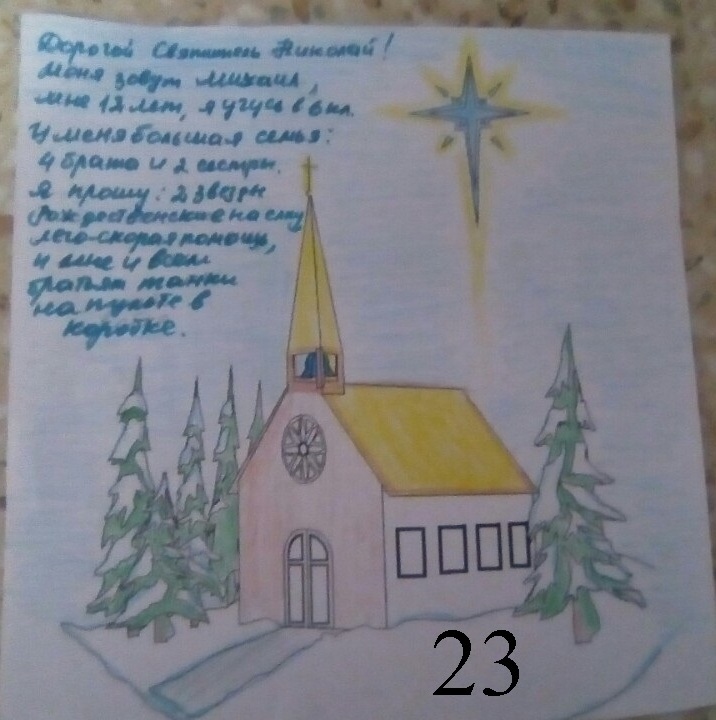 Дорогой Святитель Николай!
Меня зовут Михаил,
мне 12 лет, я учусь в 6 кл.
У меня большая семья:
4 брата и 2 сестры.
Я прошу: 2 звезды
Рождественские на елку,
лего-скорая помощь,
и мне и всем
братьям танки
на пульте в
коробке.
23